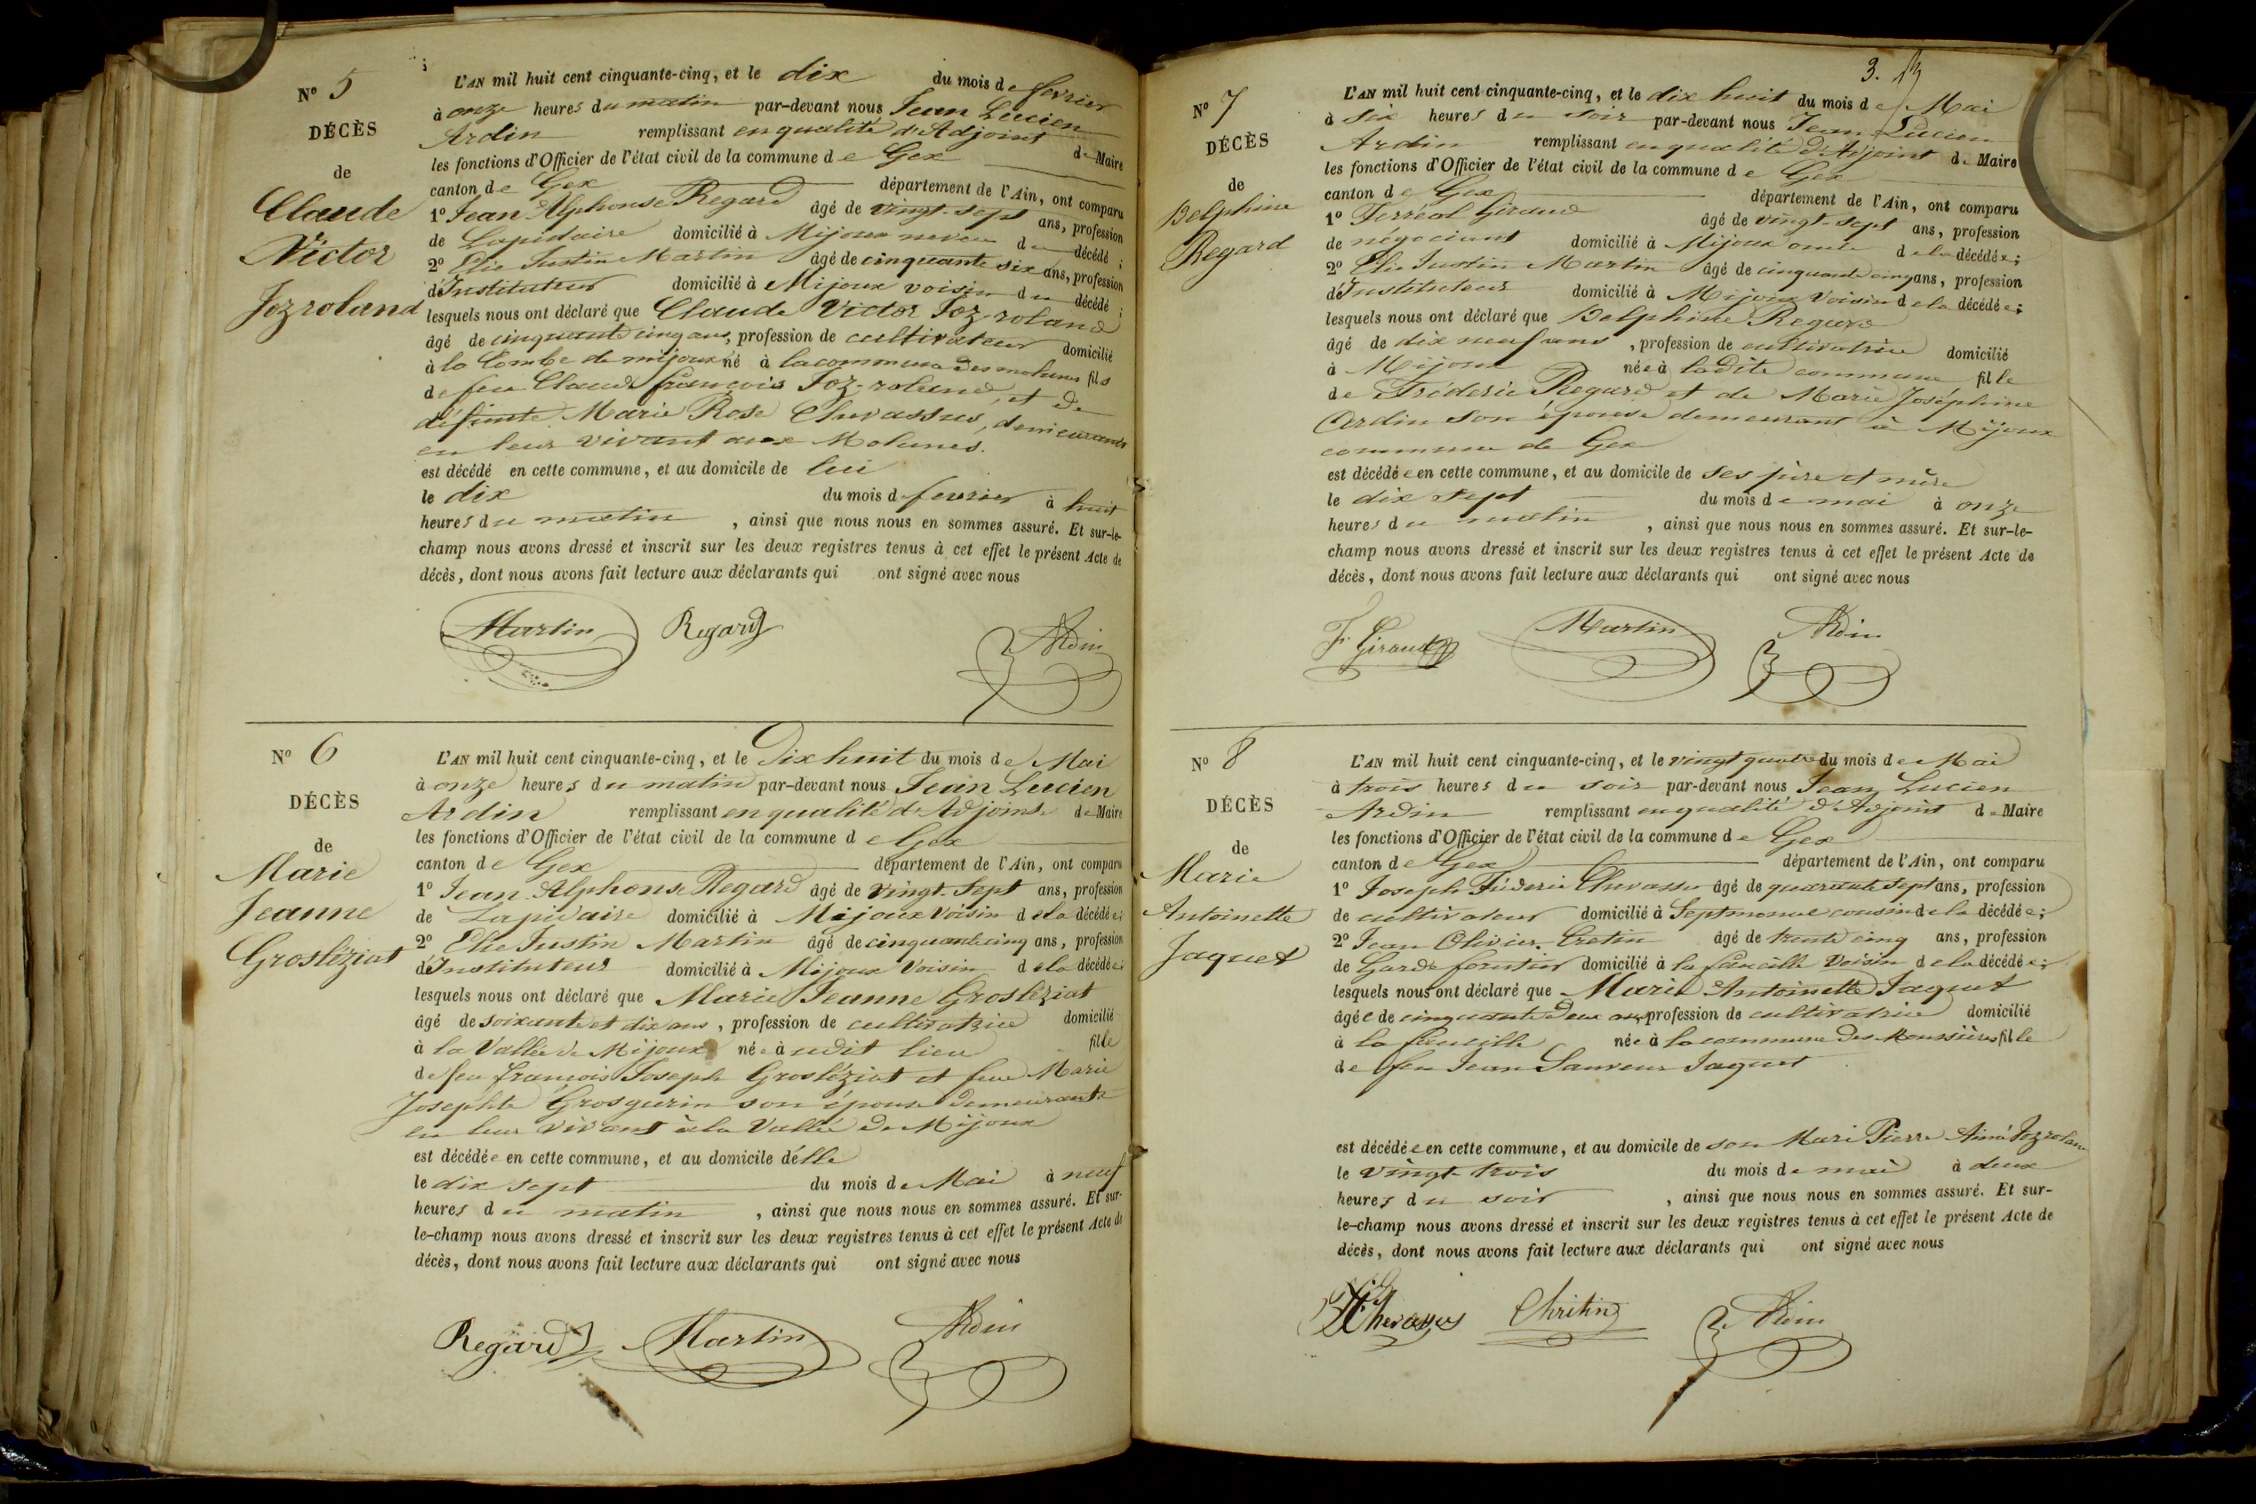 Nº 5
DÉCÈS
de
Claude
Victor
Jozroland
L'AN mil huit cent cinquante-cinq, et le dix du mois de fevrier
à onze heures du matin par-devant nous Jean Lucien
Ardin remplissant en qualité d'Adjoint de Maire
les fonctions d'Officier de l'état civil de la commune de Gex
canton de Gex département de l'Ain, ont comparu
1º Jean Alphonse Regard âgé de vingt-sept ans, profession
de Lapidaire domicilié à Mijoux neveu du décédé ;
2º Elie Justin Martin âgé de cinquante six ans, profession
d'Instituteur domicilié à Mijoux voisin du décédé ;
lesquels nous ont déclaré que Claude Victor Joz-roland
âgé de cinquante cinq ans, profession de cultivateur domicilié
à la Combe de mijoux né à la commune des molunes fils
de feu Claude françois Joz-roland, et de
défunte Marie Rose Chevassus, demeurants
en leur vivant aux Molunes.
est décédé en cette commune, et au domicile de lui
le dix du mois de fevrier à huit
heures du matin , ainsi que nous nous en sommes assuré. Et sur-le-
champ nous avons dressé et inscrit sur les deux registres tenus à cet effet le présent Acte de
décès, dont nous avons fait lecture aux déclarants qui ont signé avec nous
Martin Regard Ardin
Nº 6
DÉCÈS
de
Marie
Jeanne
Grosléziat
L'AN mil huit cent cinquante-cinq, et le Dix huit du mois de Mai
à onze heures du matin par-devant nous Jean Lucien
Ardin remplissant en qualité d'Adjoint de Maire
les fonctions d'Officier de l'état civil de la commune de Gex
canton de Gex département de l'Ain, ont comparu
1º Jean Alphonse Regard âgé de vingt-sept ans, profession
de Lapidaire domicilié à Mijoux Voisin de la décédée ;
2º Elie Justin Martin âgé de cinquante cinq ans, profession
d'Instituteur domicilié à Mijoux Voisin de la décédée ;
lesquels nous ont déclaré que Marie Jeanne Grosléziat
âgé de soixante et dix ans, profession de cultivatrice domicilié
à la Vallée de Mijoux née à udit lieu fille
de feu françois Joseph Grosléziat et feue Marie
Josephte Grosgurin son épouse demeurants
en leur vivant à la Vallée de Mijoux
est décédée en cette commune, et au domicile d'elle
le dix sept du mois de Mai à neuf
heures du matin , ainsi que nous nous en sommes assuré. Et sur-
le-champ nous avons dressé et inscrit sur les deux registres tenus à cet effet le présent Acte de
décès, dont nous avons fait lecture aux déclarants qui ont signé avec nous
Regard Martin Ardin
3.
Nº 7
DÉCÈS
de
Delphine
Regard
L'AN mil huit cent cinquante-cinq, et le dix huit du mois de Mai
à six heures du soir par-devant nous Jean Lucien
Ardin remplissant en qualité d'Adjoint de Maire
les fonctions d'Officier de l'état civil de la commune de Gex
canton de Gex département de l'Ain, ont comparu
1º Ferréol Giraud âgé de vingt-sept ans, profession
de négociant domicilié à Mijoux de la décédée ;
2º Elie Justin Martin âgé de cinquante cinq ans, profession
d'Instituteur domicilié à Mijoux Voisin de la décédée ;
lesquels nous ont déclaré que Delphine Regard
âgé de dix neuf ans , profession de cultivatrice domicilié
à Mijoux née à la dite commune fille
de Fréderic Regard et de Marie Joséphine
Ardin son épouse demeurant à Mijoux
commune de Gex
est décédée en cette commune, et au domicile de ses père et mère
le dix sept du mois de mai à onze
heures du matin , ainsi que nous nous en sommes assuré. Et sur-le-
champ nous avons dressé et inscrit sur les deux registres tenus à cet effet le présent Acte de
décès, dont nous avons fait lecture aux déclarants qui ont signé avec nous
F. Giraud Martin Ardin
Nº 8
DÉCÈS
de
Marie
Antoinette
Jaquet
L'AN mil huit cent cinquante-cinq, et le vingt quatre du mois de Mai
à trois heures du soir par-devant nous Jean Lucien
Ardin remplissant en qualité d'Adjoint de Maire
les fonctions d'Officier de l'état civil de la commune de Gex
canton de Gex département de l'Ain, ont comparu
1º Joseph Fréderic Chevassu âgé de quarante sept ans, profession
de cultivateur domicilié à Septmoncel cousin de la décédée ;
2º Jean Olivier Cretin âgé de trente cinq ans, profession
de Garde forestier domicilié à la faucille Voisin de la décédée ;
lesquels nous ont déclaré que Marie Antoinette Jaquet
âgée de cinquante deux ans, profession de cultivatrice domicilié
à la faucille née à la commune des Moussières fille
de feu Jean Sauveur Jaquet
est décédée en cette commune, et au domicile de son Mari Pierre Aimé Jozroland
le vingt trois du mois de mai à deux
heures du soir , ainsi que nous nous en sommes assuré. Et sur-
le-champ nous avons dressé et inscrit sur les deux registres tenus à cet effet le présent Acte de
décès, dont nous avons fait lecture aux déclarants qui ont signé avec nous
Chevassus Chritin Ardin